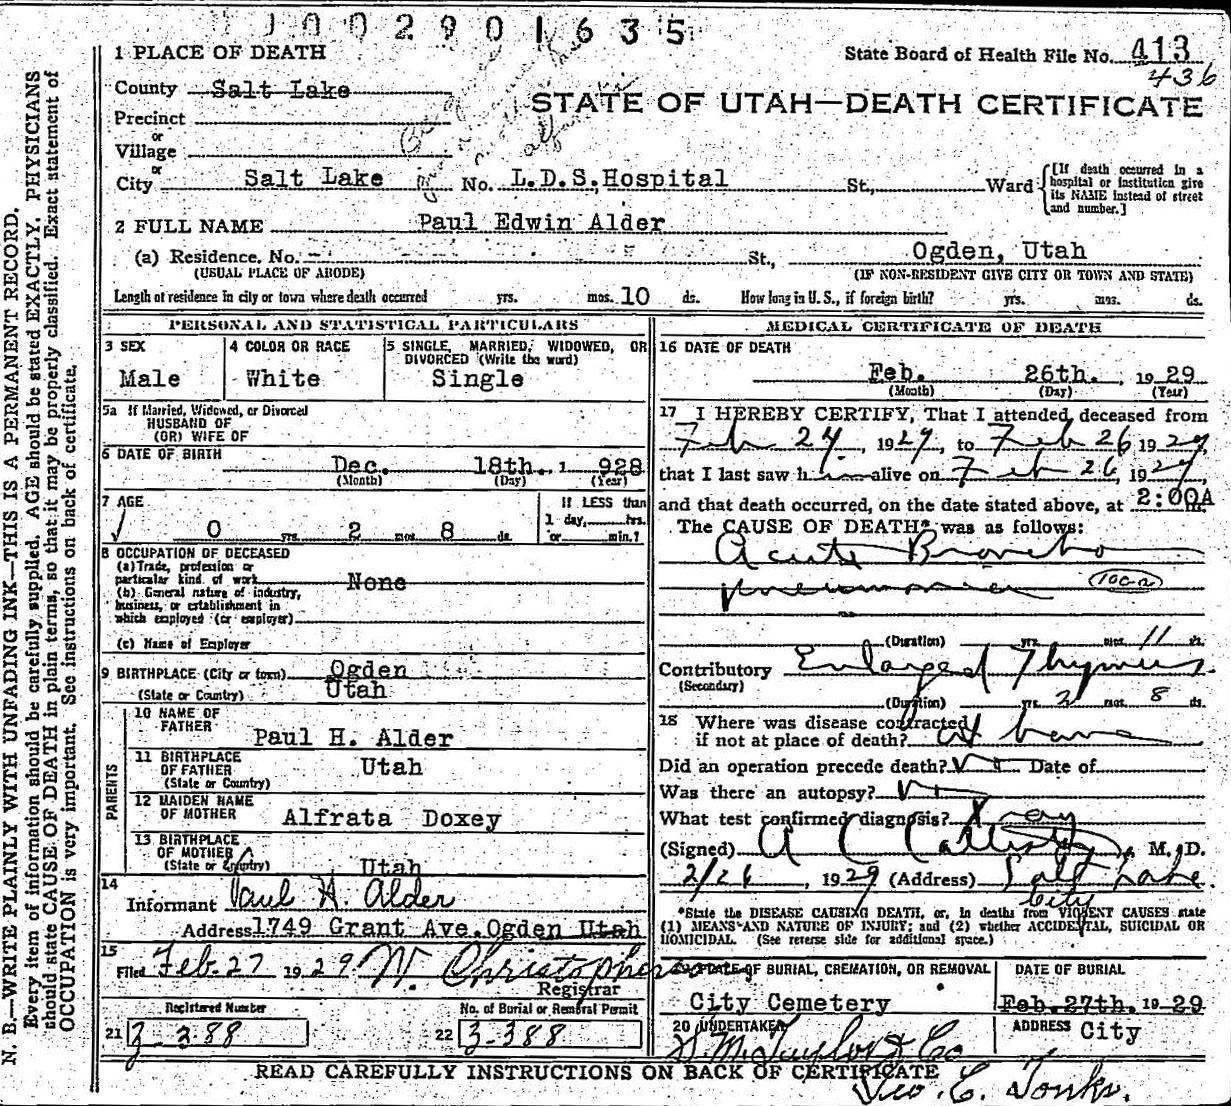 1002901635
1 PLACE OF DEATH
State Board of Health File No. 413
436
County Salt Lake
STATE OF UTAH—DEATH CERTIFICATE
Precinct
or
Village
or
City Salt Lake No. L.D.S. Hospital St., Ward
[If death occurred in a hospital or institution give its NAME instead of street and number.]
2 FULL NAME Paul Edwin Alder
(a) Residence. No. - St., Ogden, Utah
(USUAL PLACE OF ABODE) (IF NON-RESIDENT GIVE CITY OR TOWN AND STATE)
Length of residence in city or town where death occurred yrs. mos. 10 ds. How long in U. S., if foreign birth? yrs. mos. ds.
PERSONAL AND STATISTICAL PARTICULARS
3 SEX 4 COLOR OR RACE 5 SINGLE, MARRIED, WIDOWED, OR
DIVORCED (Write the word)
Male White Single
5a If Married, Widowed, or Divorced
HUSBAND OF
(OR) WIFE OF
6 DATE OF BIRTH Dec. 18th. 1 928
(Month) (Day) (Year)
7 AGE If LESS than
1 day, hrs.
0 yrs. 2 mos. 8 ds. or min.?
8 OCCUPATION OF DECEASED
(a) Trade, profession or
particular kind of work None
(b) General nature of industry,
business, or establishment in
which employed (or employer)
(c) Name of Employer
9 BIRTHPLACE (City or town) Ogden
(State or Country) Utah
PARENTS
10 NAME OF
FATHER Paul H. Alder
11 BIRTHPLACE
OF FATHER Utah
(State or Country)
12 MAIDEN NAME
OF MOTHER Alfrata Doxey
13 BIRTHPLACE
OF MOTHER
(State or Country) Utah
14
Informant Paul H. Alder
Address 1749 Grant Ave. Ogden Utah
15
Filed Feb. 27 1929. W. Christopherson
Registrar
Registered Number No. of Burial or Removal Permit
21 3-388 22 3-388
MEDICAL CERTIFICATE OF DEATH
16 DATE OF DEATH
Feb. 26th. , 19 29
(Month) (Day) (Year)
17 I HEREBY CERTIFY, That I attended deceased from
Feb 24, 1929, to Feb 26 1929,
that I last saw h im alive on Feb 26, 1929,
and that death occurred, on the date stated above, at 2:00A m.
The CAUSE OF DEATH* was as follows:
Acute Broncho
pneumonia 100-a
(Duration) yrs. mos. 11 ds.
Contributory Enlarged Thymus
(Secondary)
(Duration) yrs. 2 mos. 8 ds.
18 Where was disease contracted
if not at place of death? At home
Did an operation precede death? No Date of
Was there an autopsy? No
What test confirmed diagnosis? X ray
(Signed) A C Callister, M. D.
2/26, 1929 (Address) Salt Lake
City
*State the DISEASE CAUSING DEATH, or, in deaths from VIOLENT CAUSES state
(1) MEANS AND NATURE OF INJURY; and (2) whether ACCIDENTAL, SUICIDAL OR
HOMICIDAL. (See reverse side for additional space.)
19 PLACE OF BURIAL, CREMATION, OR REMOVAL DATE OF BURIAL
City Cemetery Feb. 27th. 19 29
20 UNDERTAKER ADDRESS City
S. M. Taylor & Co
Geo. C. Tonks.
READ CAREFULLY INSTRUCTIONS ON BACK OF CERTIFICATE
N. B.—WRITE PLAINLY WITH UNFADING INK—THIS IS A PERMANENT RECORD.
Every item of information should be carefully supplied. AGE should be stated EXACTLY. PHYSICIANS
should state CAUSE OF DEATH in plain terms, so that it may be properly classified. Exact statement of
OCCUPATION is very important. See instructions on back of certificate.